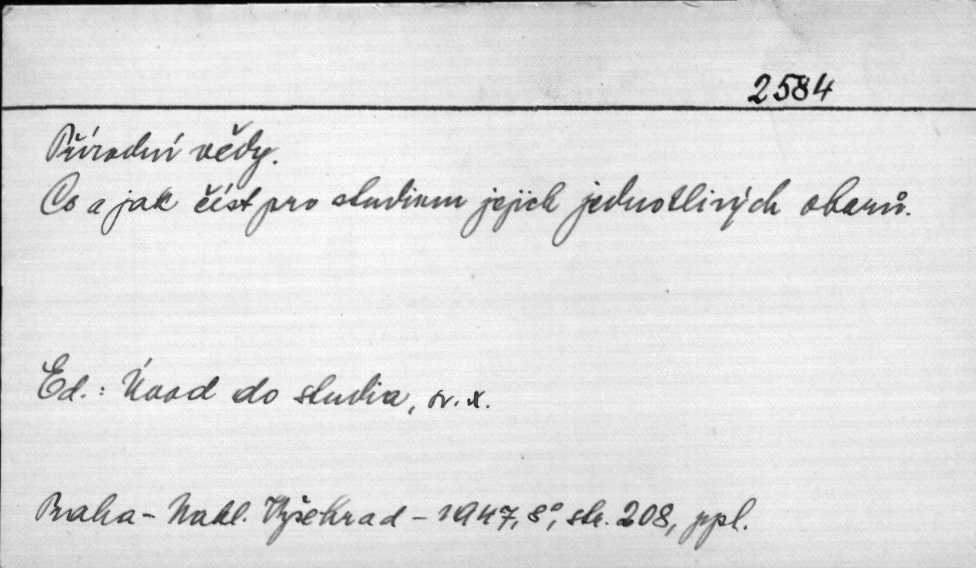 2584
Přírodní vědy.
Co a jak číst pro studium jejich jednotlivých oborů.
Ed.: Úvod do studia, sv. x.
Praha - Nakl. Vyšehrad - 1947, 8°, str. 208, ppl.